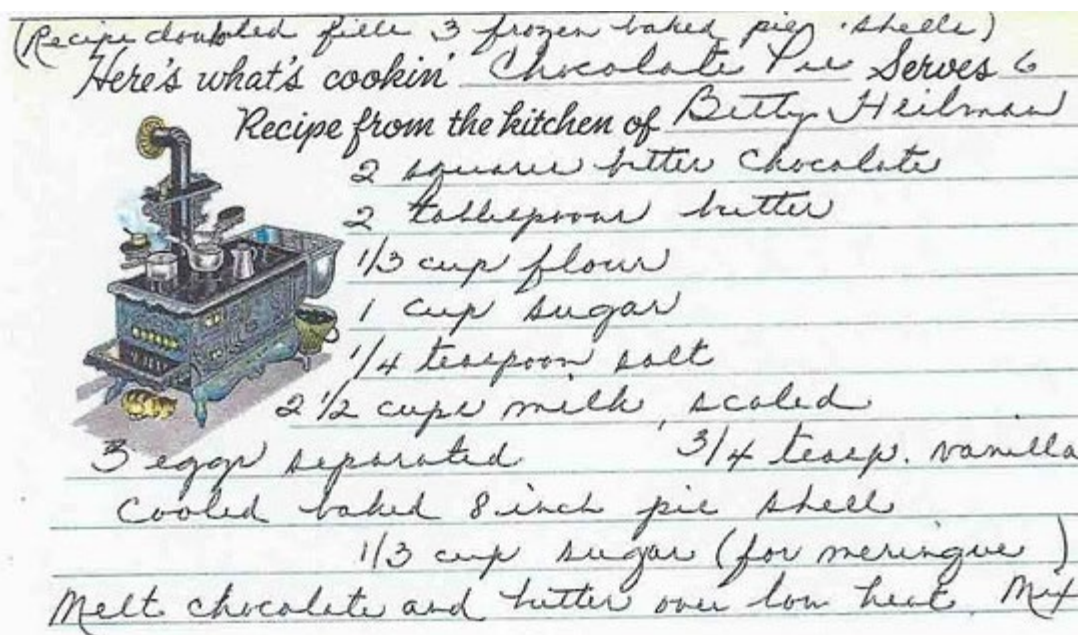 (Recipe doubled fills 3 frozen baked pie shells)
Here's what's cookin' Chocolate Pie Serves 6
Recipe from the kitchen of Betty Heilman
2 squares bitter chocolate
2 tablespoons butter
1/3 cup flour
1 cup sugar
1/4 teaspoon salt
2 1/2 cups milk, scaled
3 eggs separated 3/4 teasp. vanilla
Cooled baked 8 inch pie shell
1/3 cup sugar (for meringue)
Melt chocolate and butter over low heat. Mix